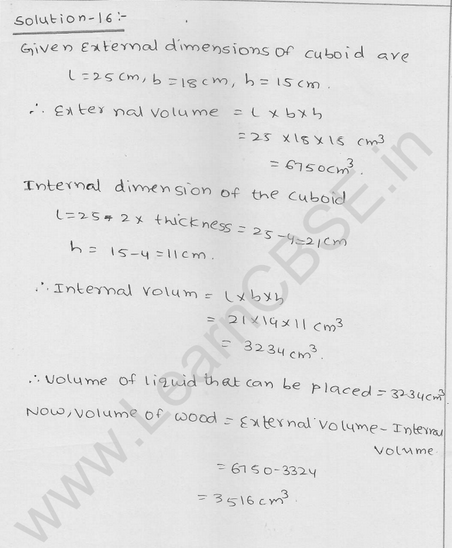 Solution-16:-
Given External dimensions of cuboid are
l=25cm, b=18cm, h=15cm.
∴ External volume = l × b × h
= 25 × 18 × 15 cm³
= 6750cm³.
Internal dimension of the cuboid
l=25-2× thickness = 25-4=21cm
h = 15-4=11cm.
∴ Internal volum = l×b×h
= 21×14×11 cm³
= 3234 cm³.
∴ Volume of liquid that can be placed = 3234cm³
Now, Volume of wood = External Volume - Internal
Volume
= 6750-3324
= 3516cm³
www.LearnCBSE.in